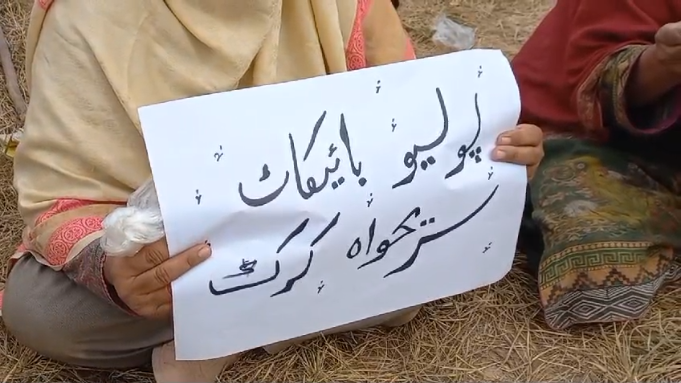 پولیو بائیکاٹ
سترخواہ کرکٹ